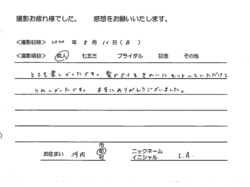 撮影お疲れ様でした。 感想をお願いいたします。
<撮影日時> 2020 年 8 月 16 日 (日)
<撮影項目> 成人 七五三 ブライダル 記念 その他
とても楽しかったです。髪がざりをきれいにセットしていただけて
うれしかったです。本当にありがとうございました。
市
お住まい 河内 町 ニックネーム
村 イニシャル I.A.